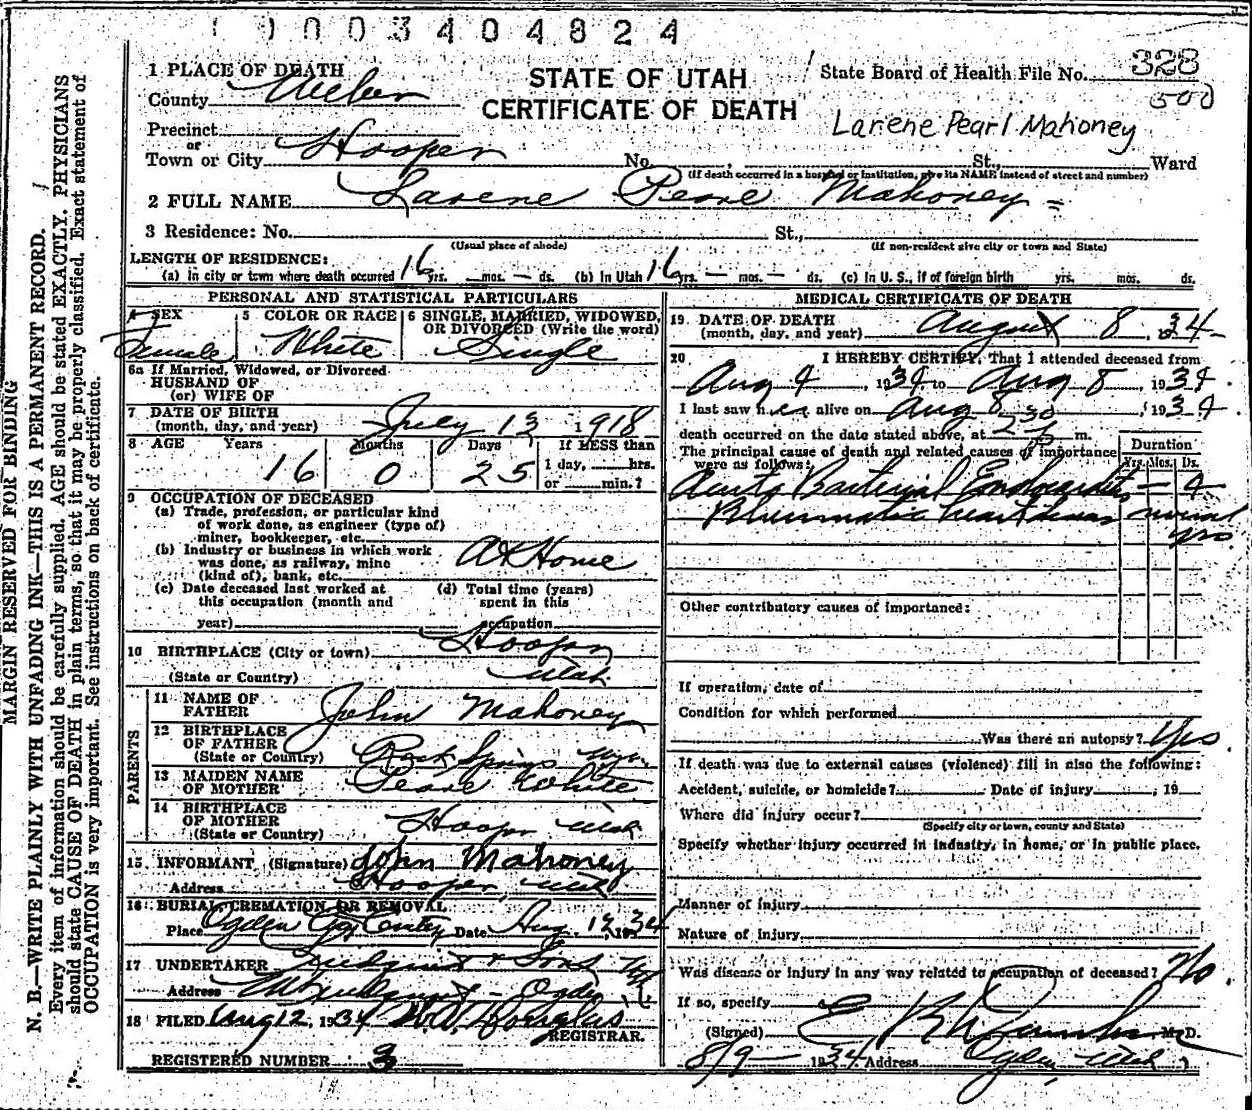 1 0 0 3 4 0 4 8 2 4
MARGIN RESERVED FOR BINDING
N. B.—WRITE PLAINLY WITH UNFADING INK—THIS IS A PERMANENT RECORD.
Every item of information should be carefully supplied. AGE should be stated EXACTLY. PHYSICIANS
should state CAUSE OF DEATH in plain terms, so that it may be properly classified. Exact statement of
OCCUPATION is very important. See instructions on back of certificate.
STATE OF UTAH
CERTIFICATE OF DEATH
State Board of Health File No. 328
500
Larene Pearl Mahoney
1 PLACE OF DEATH
County Weber
Precinct
or
Town or City Hooper No. , St., Ward
(If death occurred in a hospital or institution, give its NAME instead of street and number)
2 FULL NAME Larene Pearl Mahoney
3 Residence: No. St.,
(Usual place of abode) (If non-resident give city or town and State)
LENGTH OF RESIDENCE:
(a) in city or town where death occurred 16 yrs. — mos. — ds. (b) In Utah 16 yrs. — mos. — ds. (c) In U. S., if of foreign birth yrs. mos. ds.
PERSONAL AND STATISTICAL PARTICULARS
4 SEX Female
5 COLOR OR RACE White
6 SINGLE, MARRIED, WIDOWED, OR DIVORCED (Write the word) Single
6a If Married, Widowed, or Divorced
HUSBAND OF
(or) WIFE OF
7 DATE OF BIRTH
(month, day, and year) July 13 1918
8 AGE Years 16 Months 0 Days 25 If LESS than
1 day, hrs.
or min.?
9 OCCUPATION OF DECEASED
(a) Trade, profession, or particular kind
of work done, as engineer (type of)
miner, bookkeeper, etc.
(b) Industry or business in which work
was done, as railway, mine
(kind of), bank, etc. At Home
(c) Date deceased last worked at
this occupation (month and
year)
(d) Total time (years)
spent in this
occupation
10 BIRTHPLACE (City or town) Hooper
(State or Country) Utah
PARENTS
11 NAME OF
FATHER John Mahoney
12 BIRTHPLACE
OF FATHER
(State or Country) Rock Springs Wyo.
13 MAIDEN NAME
OF MOTHER Pearl White
14 BIRTHPLACE
OF MOTHER
(State or Country) Hooper Utah
15 INFORMANT (Signature) John Mahoney
Address Hooper, Utah
16 BURIAL, CREMATION, OR REMOVAL
Place Ogden City Date Aug. 12, 1934
17 UNDERTAKER Lindquist & Sons
Address Ogden
18 FILED Aug 12, 1934 Douglas
REGISTRAR.
REGISTERED NUMBER 3
MEDICAL CERTIFICATE OF DEATH
19 DATE OF DEATH
(month, day, and year) August 8, 34
20 I HEREBY CERTIFY, That I attended deceased from
Aug 4, 1934 to Aug 8, 1934
I last saw her alive on Aug 8, 1934
death occurred on the date stated above, at 2 30 m.
The principal cause of death and related causes of importance
were as follows:
Duration
Yrs. Mos. Ds.
Acute Bacterial Endocarditis — 4
Rheumatic heart disease several
yrs.
Other contributory causes of importance:
If operation, date of
Condition for which performed
Was there an autopsy? Yes
If death was due to external causes (violence) fill in also the following:
Accident, suicide, or homicide? Date of injury , 19
Where did injury occur?
(Specify city or town, county and State)
Specify whether injury occurred in industry, in home, or in public place.
Manner of injury
Nature of injury
Was disease or injury in any way related to occupation of deceased? No
If so, specify
(Signed) E R M. D.
8/9 — 1934 Address Ogden, Utah